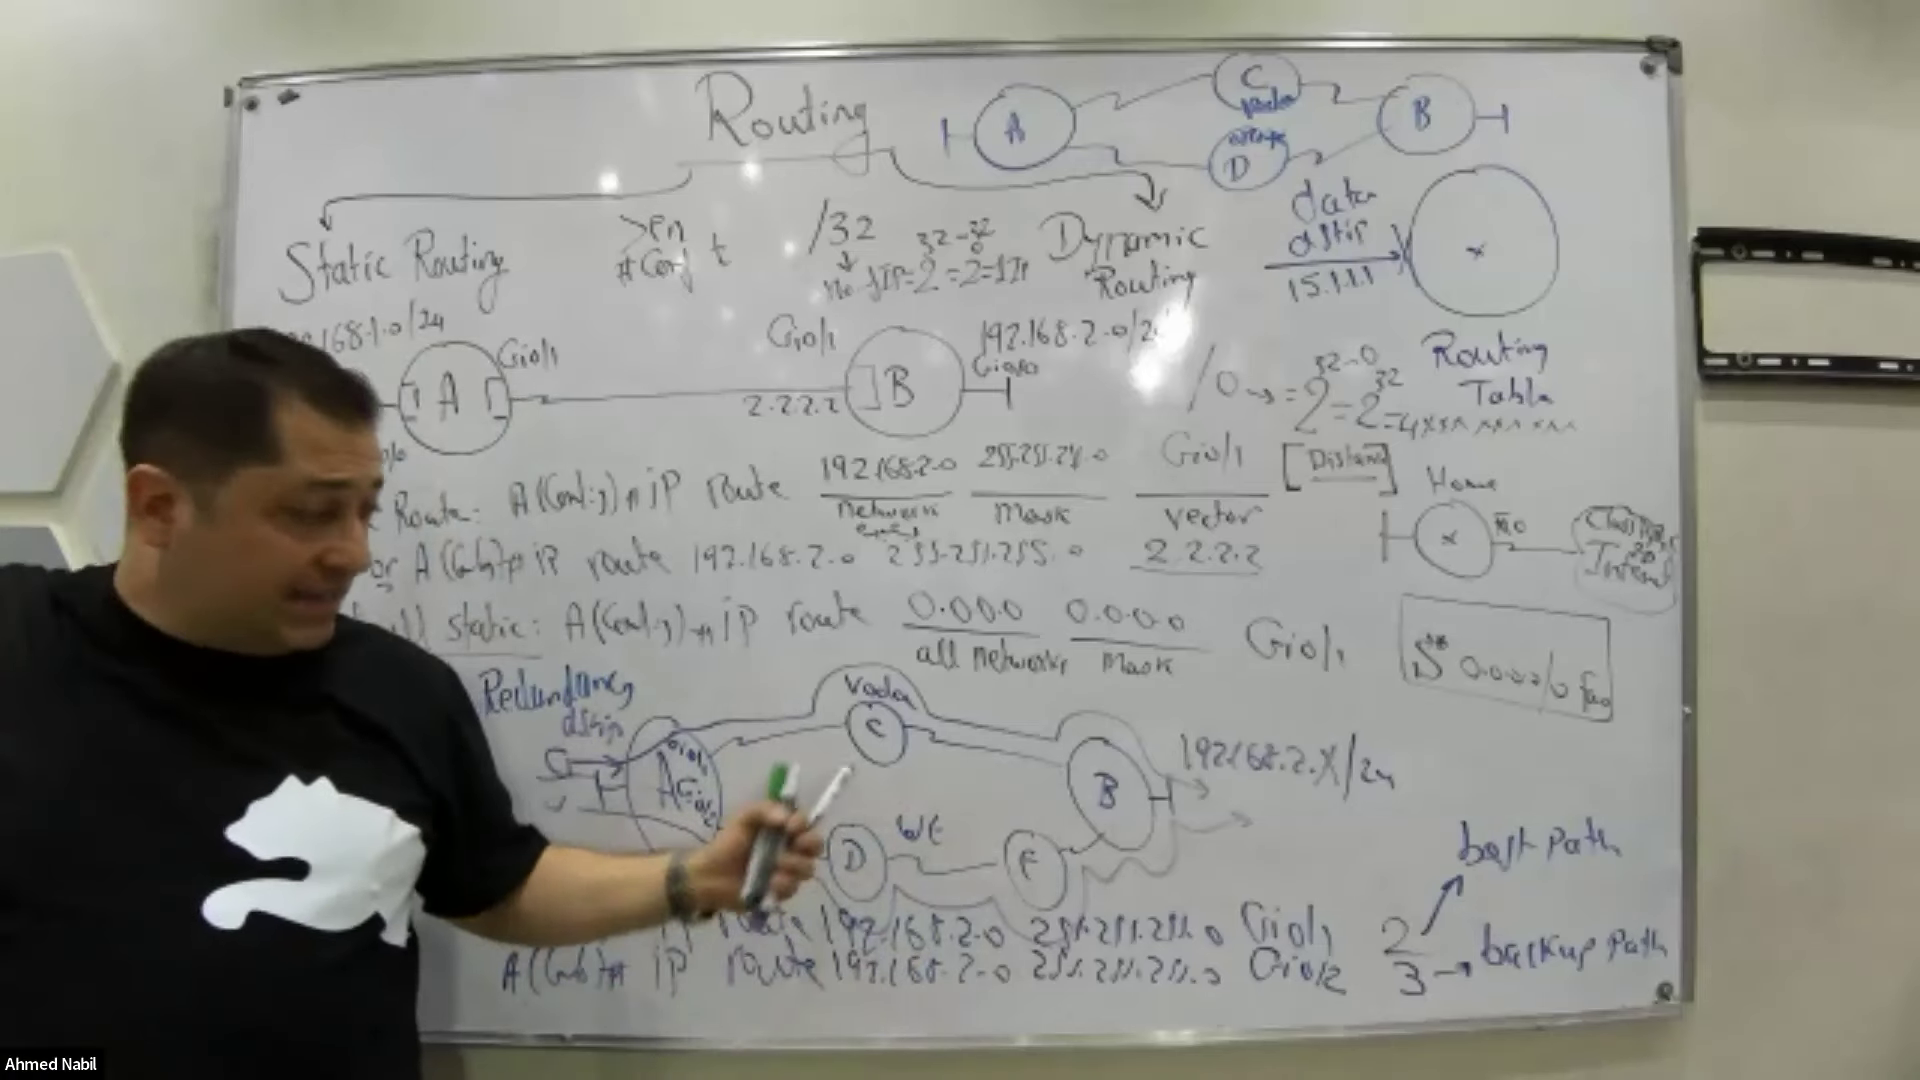 Routing
A
C
Voda
B
orange
D
Static Routing
>en
# Conf t
/32
no. IP = 2^32-32 = 2^0 = 1 IP
Dynamic
Routing
data
dstip
15.1.1.1
x
Routing
Table
.168.1.0/24
Gio/1
A
Gio/1
2.2.2.2
B
192.168.2.0/2
Gio/0
/0 → = 2^32-0 = 2^32 = 4
Route: A(Config)# ip route 192.168.2.0 255.255.255.0 Gio/1 [Distance]
network mask vector
or A(Config)# ip route 192.168.2.0 255.255.255.0 2.2.2.2
Home
x
Fa0
ISP
Internet
static: A(Config)# ip route 0.0.0.0 0.0.0.0 Gio/1
all networks mask
S* 0.0.0.0/0 Fa0
Redundancy
Voda
C
A
Gio/1
Gio/2
B
192.168.2.X/24
D
WE
F
ip route 192.168.2.0 255.255.255.0 Gio/1 2 best path
A(Config)# ip route 192.168.2.0 255.255.255.0 Gio/2 3 → backup path
Ahmed Nabil